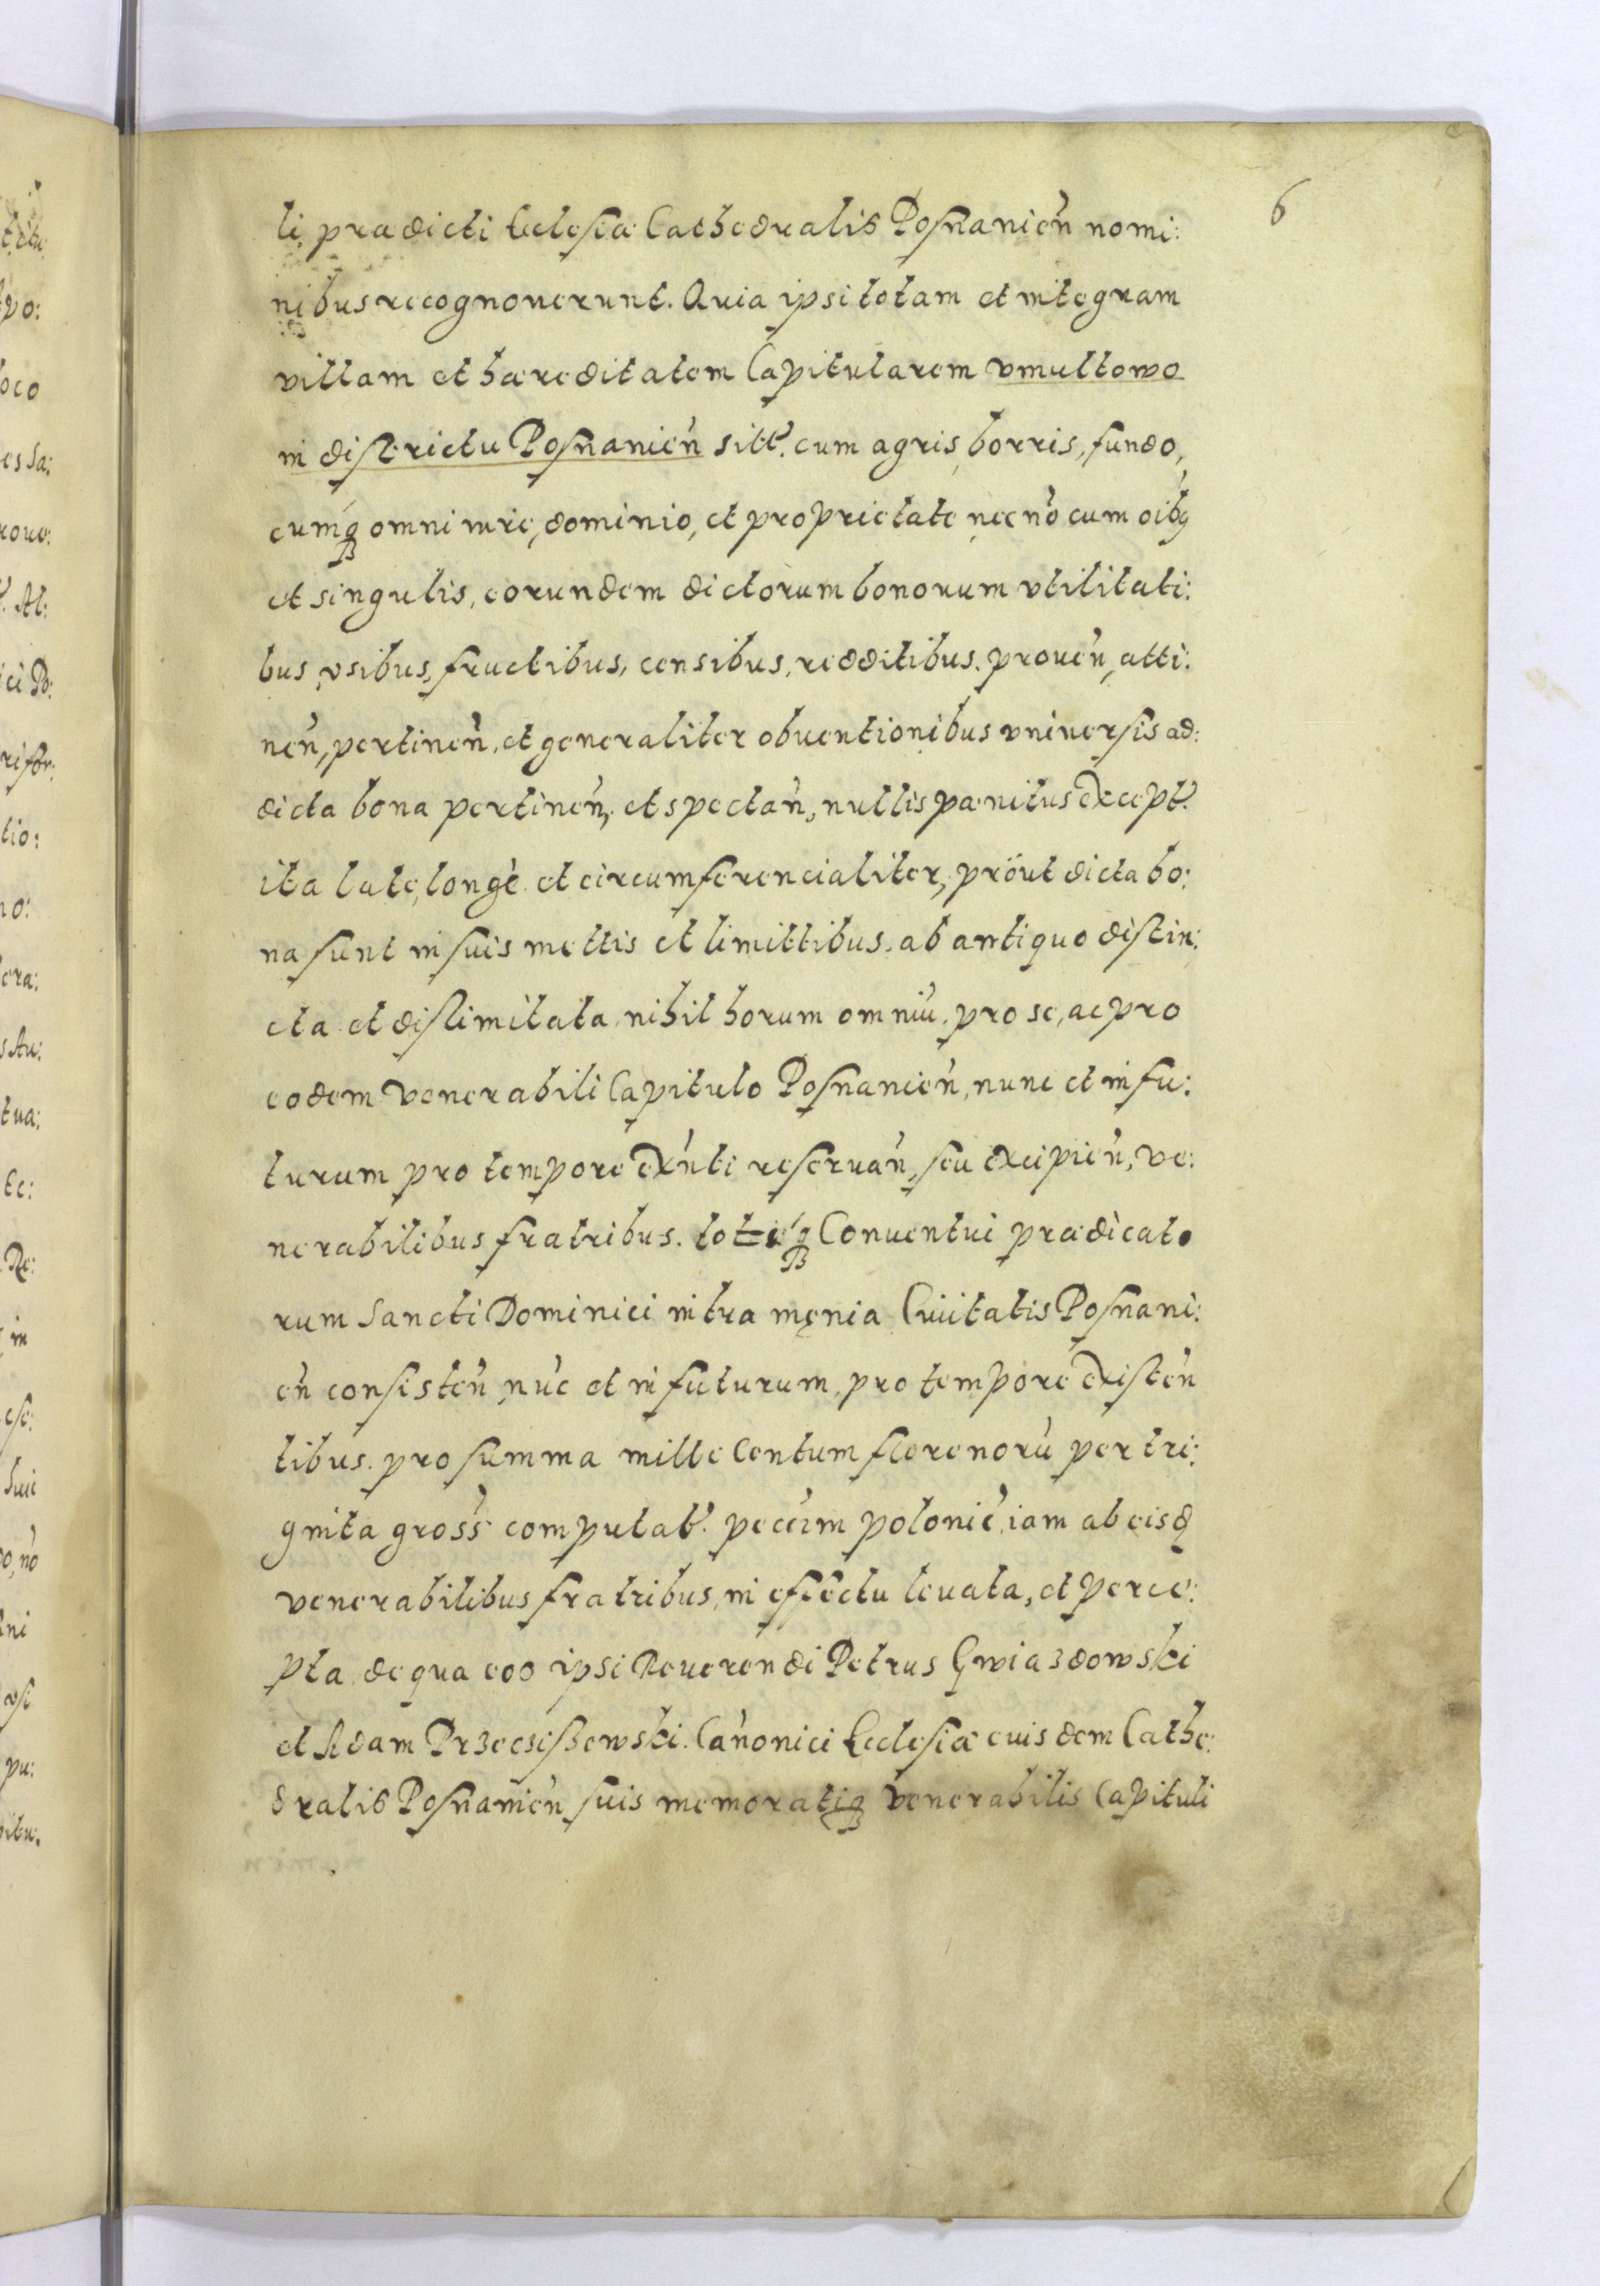 6
li prædicti Ecclesiæ Cathedralis Posnanień nomi:
nibus recognouerunt. Quia ipsi totam et integram
villam et hæreditatem Capitularem vmultowo
in districtu Posnanień sitt. cum agris, borris, fundo,
cumq omni iure, dominio, et proprietate, necnō cum oibq
et singulis, eorundem dictorum bonorum vtilitati:
bus, vsibus, fructibus, censibus, redditibus, proueń, atti:
neń, pertineń, et generaliter obuentionibus vniuersis ad:
dicta bona pertineń, et spectań, nullis pænitus except.
ita late, longè et circumferencialiter, proüt dicta bo:
na sunt in suis mettis et limittibus, ab antiquo distin:
cta et dislimitata, nihil horum omniū, pro se, ac pro
eodem Venerabili Capitulo Posnanień, nunc et in fu:
turum pro tempore exnti reseruań, seu excipień, ve:
nerabilibus fratribus. totiq Conuentui prædicato
rum Sancti Dominici intra męnia Ciuitatis Posnani:
eń consisteń, nūc et in futurum, pro tempore existen
tibus. pro summa mille Centum florenorū per tri:
ginta gross computat. peccun polonic, iam ab eisd
venerabilibus fratribus, in effectu leuata, et perce:
pta de qua eoo ipsi Reuerendi Petrus Gwiazdowski
et Adam Przeczißewski. Canonici Ecclesiæ euisdem Cathe:
dralis Posnanień suis memoratiq Venerabilis Capituli